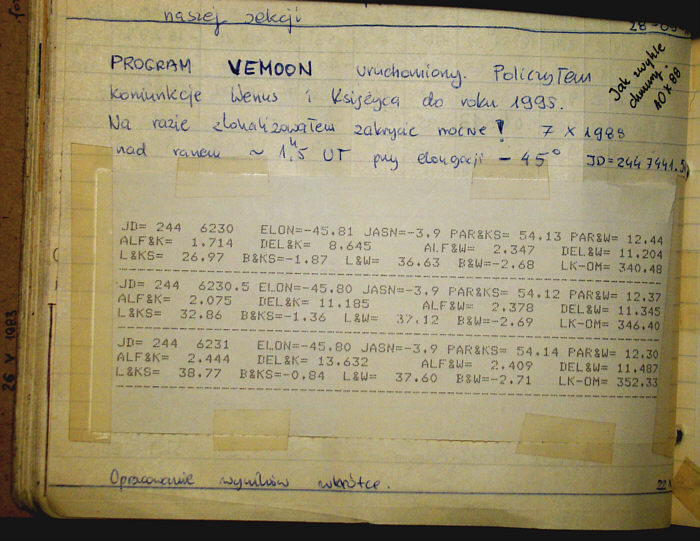 naszej sekcji
PROGRAM VEMOON uruchomiony. Policzyłem
koniunkcje Wenus i Księżyca do roku 1995.
Na razie zlokalizowałem zakrycie nocne! 7 X 1988
nad ranem ~ 1.5ʰ UT przy elongacji -45°
JD=244 7441.5
Jak zwykle
chmury!
10 X 88
JD= 244 6230 ELON=-45.81 JASN=-3.9 PAR&KS= 54.13 PAR&W= 12.44
ALF&K= 1.714 DEL&K= 8.645 ALF&W= 2.347 DEL&W= 11.204
L&KS= 26.97 B&KS=-1.87 L&W= 36.63 B&W=-2.68 LK-OM= 340.48
JD= 244 6230.5 ELON=-45.80 JASN=-3.9 PAR&KS= 54.12 PAR&W= 12.37
ALF&K= 2.075 DEL&K= 11.185 ALF&W= 2.378 DEL&W= 11.345
L&KS= 32.86 B&KS=-1.36 L&W= 37.12 B&W=-2.69 LK-OM= 346.40
JD= 244 6231 ELON=-45.80 JASN=-3.9 PAR&KS= 54.14 PAR&W= 12.30
ALF&K= 2.444 DEL&K= 13.632 ALF&W= 2.409 DEL&W= 11.487
L&KS= 38.77 B&KS=-0.84 L&W= 37.60 B&W=-2.71 LK-OM= 352.33
Opracowanie wyników wkrótce.
22
26 V 1983